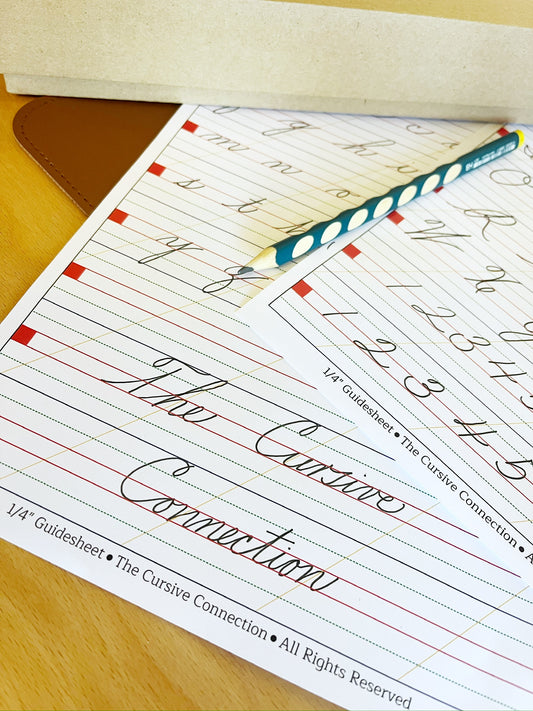 m n
s t h
y z
The Cursive
Connection
1/4" Guidesheet • The Cursive Connection • All Rights Reserved
R
W X
1 2 3 4
1 2 3 4 5
1/4" Guidesheet • The Cursive Connection • A